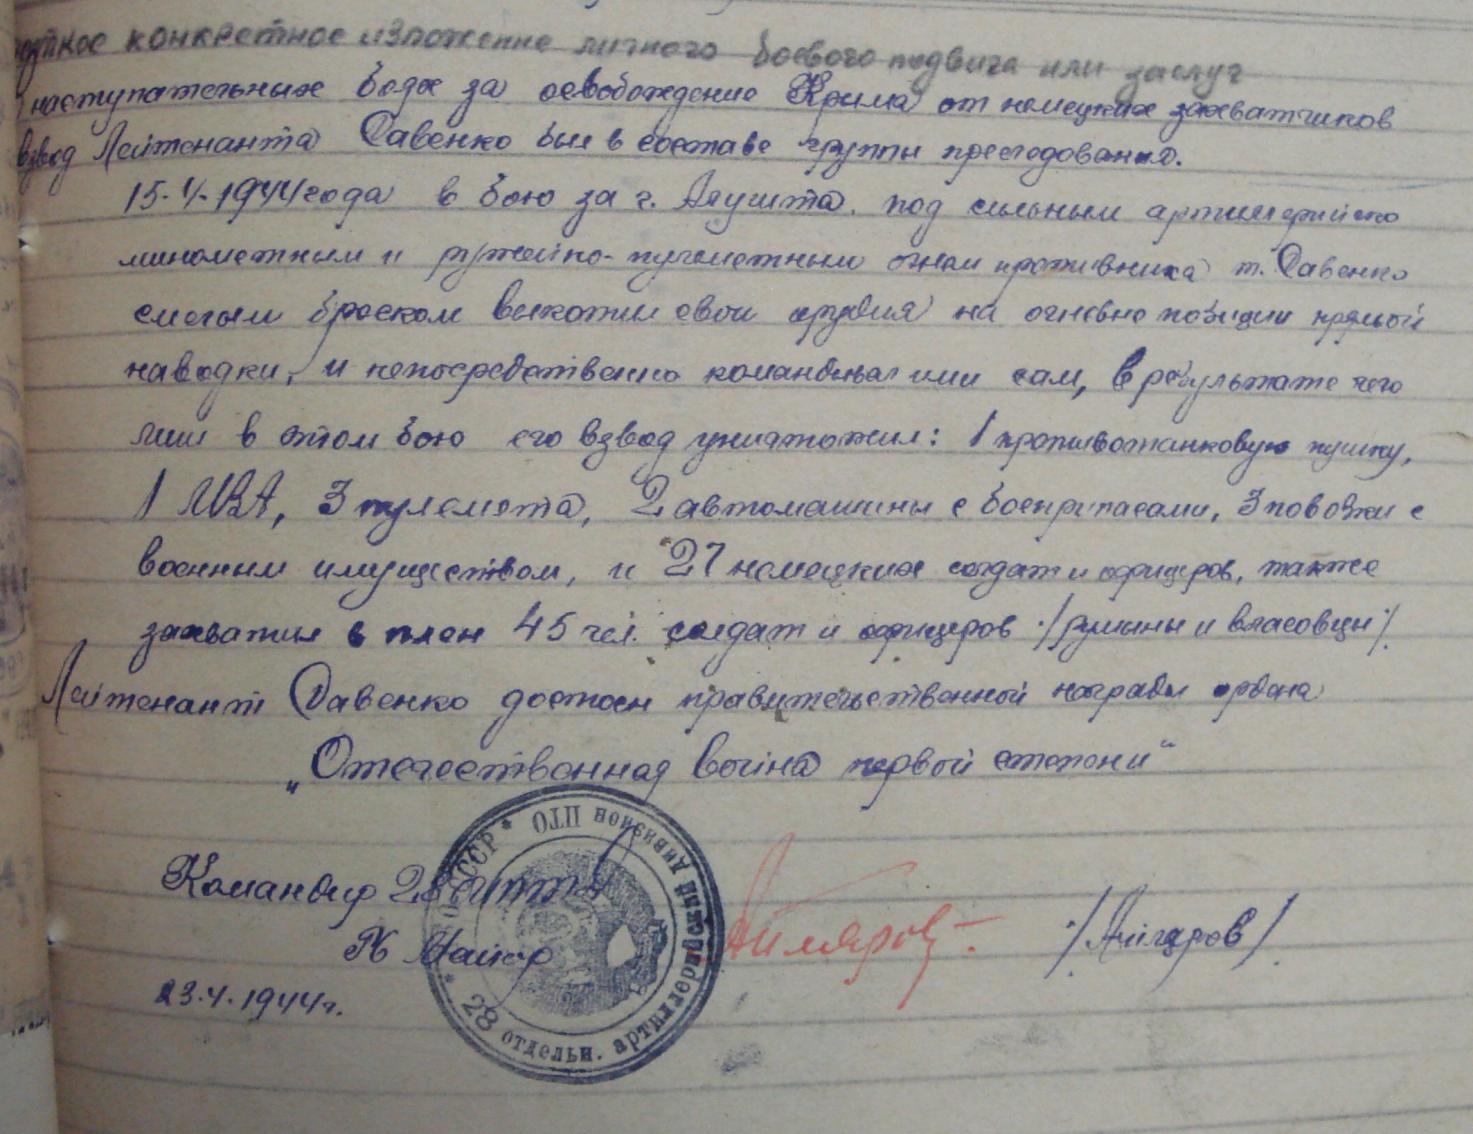 краткое конкретное изложение личного боевого подвига или заслуг
В наступательных боях за освобождение Крыма от немецких захватчиков
взвод Лейтенанта Савенко был в составе группы преследования.
15.4.1944 года в бою за г. Алушта. под сильным артиллерийско
минометным и ружейно-пулеметным огнем противника т. Савенко
смелым броском выкотил свои орудия на огневые позиции прямой
наводки, и непосредственно командывал ими сам, в результате чего
лиш в этом бою его взвод уничтожил: 1 противотанковую пушку,
1 , 3 пулемета, 2 автомашины с боеприпасами, 3 повозки с
военным имуществом, и 27 немецких солдат и офицеров, также
захватил в плен 45 чел. солдат и офицеров ./румыны и власовцы/.
Лейтенант Савенко достоен правительственной награды ордена
„Отечественная война первой степени"
Командир 28
Майор
23.4.1944 г.
* 28 отдельн. артиллерийский дивизион ПТО * СССР